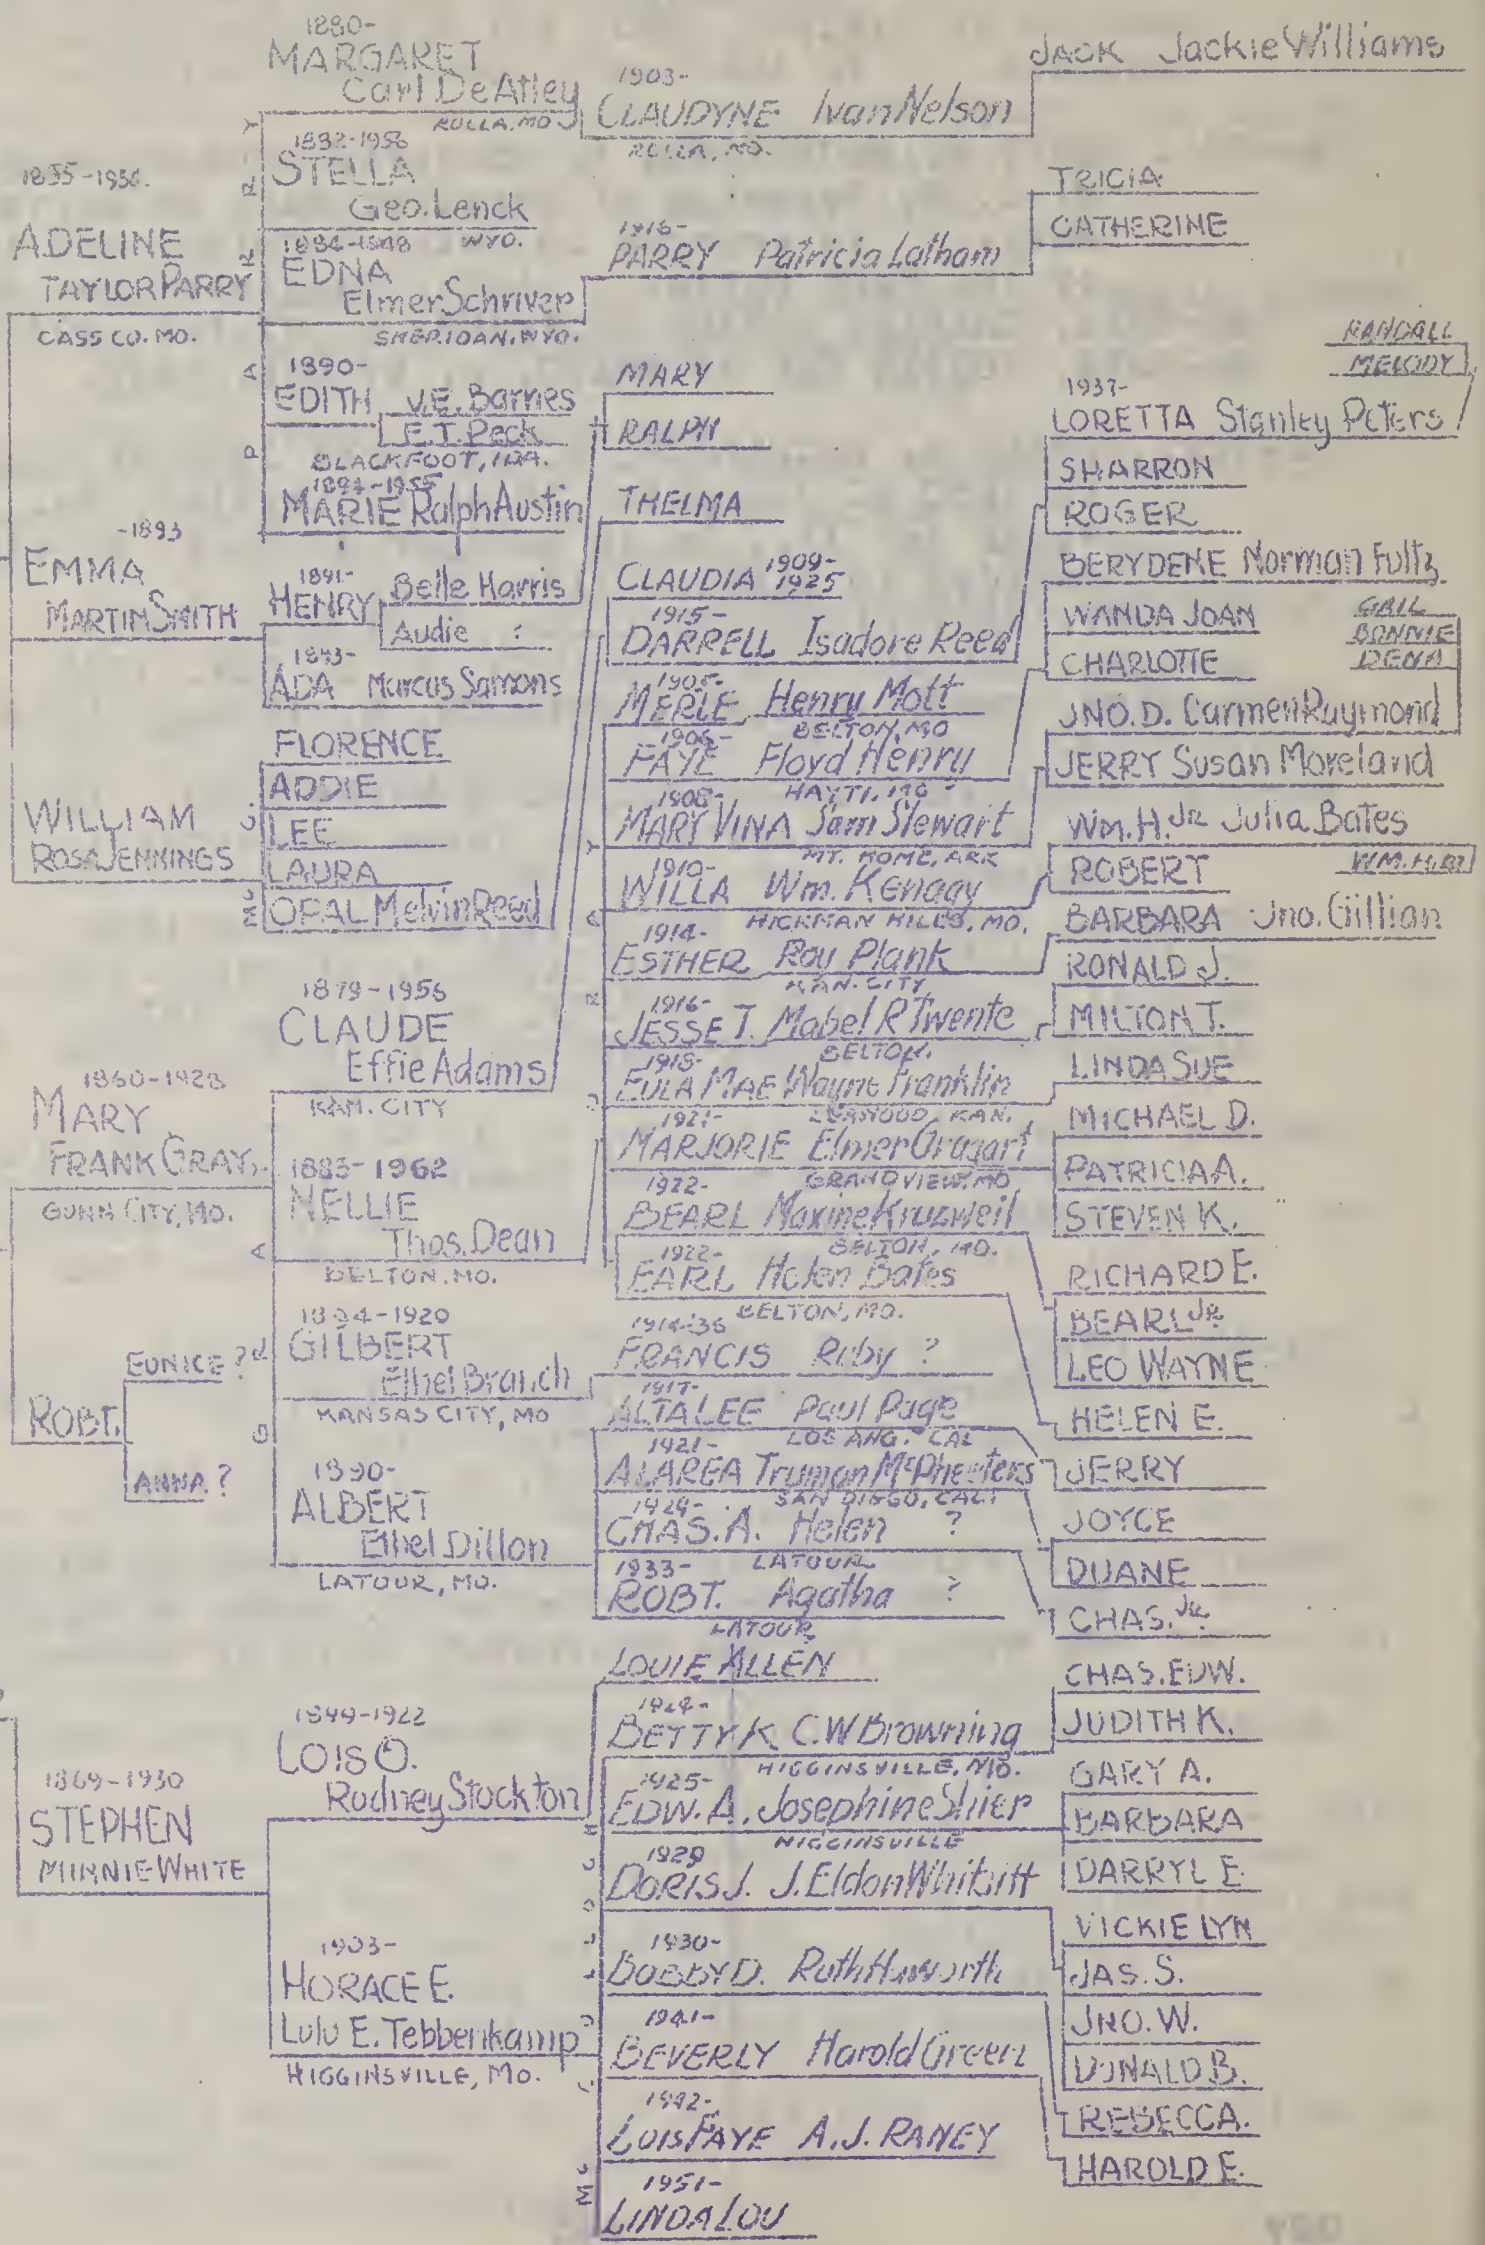 1855-1956.
ADELINE
TAYLOR PARRY
CASS CO. MO.
-1893
EMMA
MARTIN SMITH
WILLIAM
ROSA JENNINGS
1860-1928
MARY
FRANK GRAY
GUNN CITY, MO.
EUNICE ?
ROBT.
ANNA ?
1869-1930
STEPHEN
MINNIE WHITE
1880-
MARGARET
Carl DeAtley
ROLLA, MO
1882-1956
STELLA
Geo. Lenck
WYO.
1884-1948
EDNA
Elmer Schriver
SHERIDAN, WYO.
1890-
EDITH V.E. Barnes
E.T. Peck
BLACKFOOT, IDA.
1894-1955
MARIE Ralph Austin
P A R R Y
1891-
HENRY Belle Harris
Audie ?
1893-
ADA Marcus Samons
FLORENCE
ADDIE
LEE
LAURA
OPAL Melvin Reed
1879-1956
CLAUDE
Effie Adams
KAN. CITY
1883-1962
NELLIE
Thos. Dean
BELTON, MO.
GILBERT
Ethel Branch
KANSAS CITY, MO
1890-
ALBERT
Ethel Dillon
LATOUR, MO.
G R A
LOIS O.
Rodney Stockton
1903-
HORACE E.
Lulu E. Tebbenkamp
HIGGINSVILLE, MO.
1903-
CLAUDYNE Ivan Nelson
ROLLA, MO.
1916-
PARRY Patricia Latham
MARY
RALPH
THELMA
CLAUDIA 1909-1925
1915-
DARRELL Isadore Reed
MERLE Henry Mott
BELTON, MO
1906-
FAYE Floyd Henry
HAYTI, MO
1908-
MARY VINA Sam Stewart
MT. HOME, ARK
1910-
WILLA Wm. Kenagy
HICKMAN MILLS, MO.
1914-
ESTHER Roy Plank
KAN. CITY
1916-
JESSE T. Mabel R Twente
BELTON.
1918-
EULA MAE Wayne Franklin
1921-
MARJORIE Elmer Gragart
GRANDVIEW, MO
1922-
BEARL Maxine Kruzweil
BELTON, MO.
1922-
EARL Helen Bates
BELTON, MO.
1914-36
FRANCIS Ruby ?
1917-
ALTA LEE Paul Page
LOS ANG. CAL
1921-
ALAREA Truman McPheeters
SAN DIEGO, CALI
CHAS. A. Helen ?
LATOUR
1933-
ROBT. Agatha ?
LATOUR
LOUIE ALLEN
1924-
BETTY K C.W Browning
HIGGINSVILLE, MO.
1925-
EDW. A. Josephine Shier
HIGGINSVILLE
1929
DORIS J. J. Eldon Whitsitt
1930-
BOBBY D. Ruth Haworth
1941-
BEVERLY Harold Green
1942-
LOIS FAYE A.J. RANEY
1951-
LINDA LOU
JACK Jackie Williams
TRICIA
CATHERINE
RANDALL
MELODY
1937-
LORETTA Stanley Peters
SHARRON
ROGER
BERYDENE Norman Fultz
WANDA JOAN
CHARLOTTE
GAIL
BONNIE
DENA
JNO. D. Carmen Raymond
JERRY Susan Moreland
Wm. H. JR Julia Bates
ROBERT
WM. H. III
BARBARA Jno. Gillian
RONALD J.
MILTON T.
LINDA SUE
MICHAEL D.
PATRICIA A.
STEVEN K.
RICHARD E.
BEARL JR.
LEO WAYNE
HELEN E.
JERRY
JOYCE
DUANE
CHAS. JR.
CHAS. EDW.
JUDITH K.
GARY A.
BARBARA
DARRYL E.
VICKIE LYN
JAS. S.
JNO. W.
DONALD B.
REBECCA.
HAROLD E.